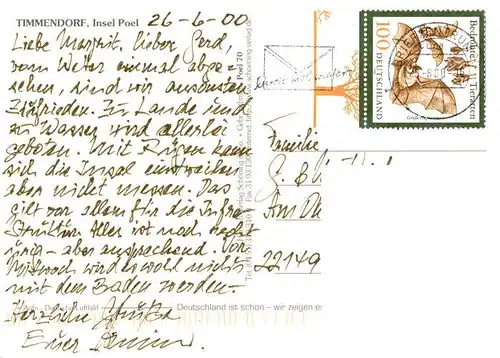 TIMMENDORF, Insel Poel 26-6-00
Liebe Margrit, lieber Gerd,
vom Wetter einmal abge-
sehen, sind wir ansonsten
zufrieden. Zu Lande und
zu Wasser wird allerlei
geboten. Mit Rügen kann
sich die Insel einstweilen
aber nicht messen. Das
gilt vor allem für die Infra-
struktur. Alles ist noch recht
- aber ansprechend. Vor
Mittwoch wird es wohl nichts
mit dem Baden werden.
Herzliche Grüße
Euer
Deutschland ist schön – wir zeigen e
Poel 70
Schreib mal wieder
Bedrohte Tierarten
100
DEUTSCHLAND
Familie
G.
Am
22149